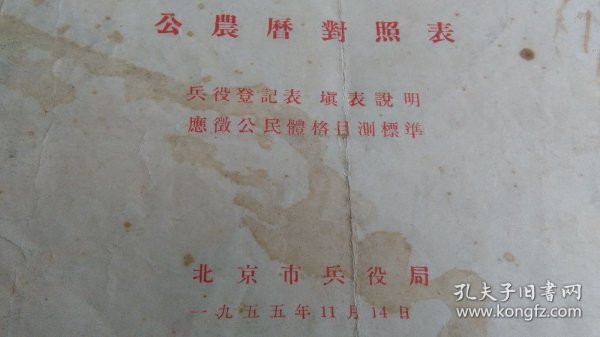 公農曆對照表
兵役登記表 塡表說明
應徵公民體格目測標準
北京市兵役局
一九五五年11月14日
孔夫子旧书网
www.kongfz.com